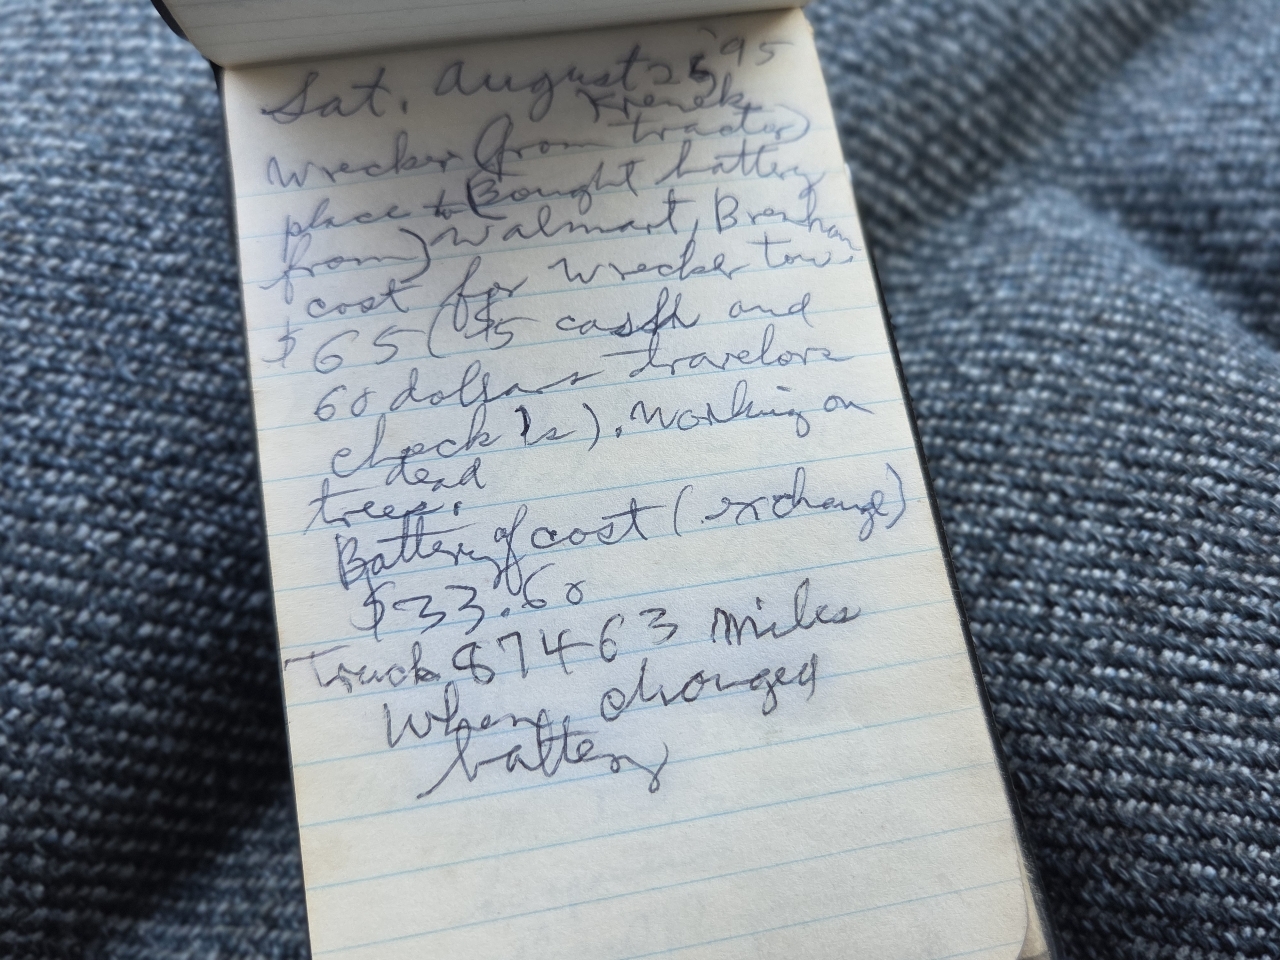 Sat. August 26, '95
Krenek
Wrecker (from tractor)
place to (Bought battery
from) Walmart, Brenham
cost for wrecker tow.
$65 ($5 cash and
60 dollars travelors
check 1s). Working on
dead
trees.
Battery cost (exchange)
$33.60
Truck 87463 miles
When changed
battery